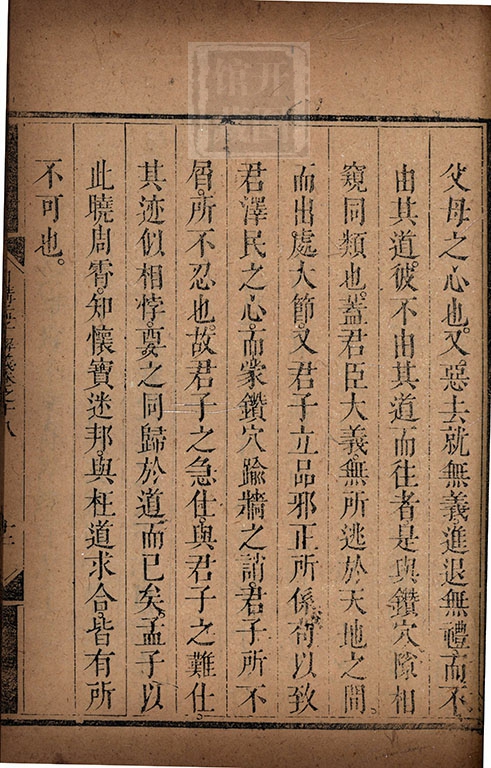 父母之心也。又惡去就無義。進退無禮。而不
由其道。彼不由其道而往者。是與鑽穴隙相
窺同類也。蓋君臣大義。無所逃於天地之間。
而出處大節。又君子立品邪正所係。苟以致
君澤民之心。而蒙鑽穴踰牆之誚。君子所不
屑。所不忍也。故君子之急仕。與君子之難仕。
其迹似相悖。要之同歸於道而已矣。孟子以
此曉周霄。知懷寶迷邦。與枉道求合。皆有所
不可也。